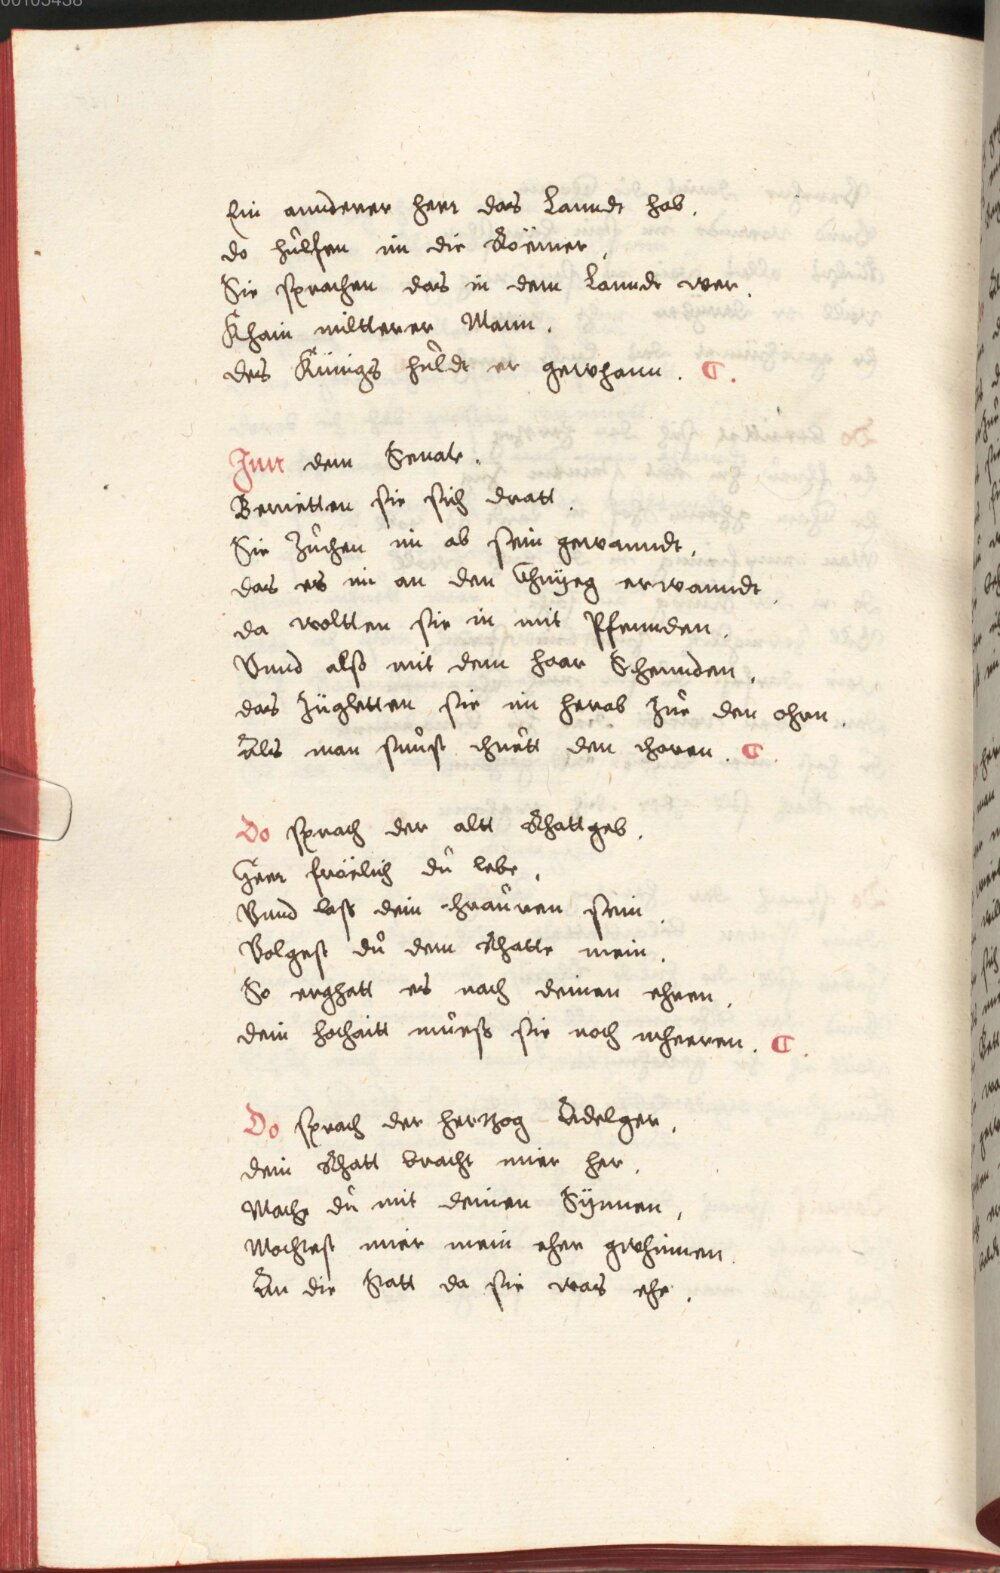 Ein annderer herr das Lanndt hab.
do hůlffen im die Roëmer,
Sie sprachen das in dem Lanndt wer.
Khain miltterer Mann.
des Künigs hůldt er gewhann. ¶.
Inn dem Senate.
Berietten sie sich dratt.
Sie Zůchen im ab sein gewanndt,
das es im an den Chnÿeg erwanndt.
da woltten sie in mit Pfennden.
Vnnd alß mit dem haar Schennden,
das Züghetten sie im herab Zůe den ohrn.
Als man sůnst thuett den thoren. ¶.
Do sprach der altt Rhattgeb.
Herr froëlich dů lebe,
Vnnd laß dein thraůren sein.
Volgest dů dem Rhatte mein.
So erghett es nach deinen ehren.
dein hochaitt můeß sie noch mheeren. ¶.
Do sprach der hertzog Adelger.
dein Rhatt bracht mier her.
Mache dů mit deinen Sÿnnen,
Mochtest mier mein eher gwhinnen.
An die Statt da sie was ehe.